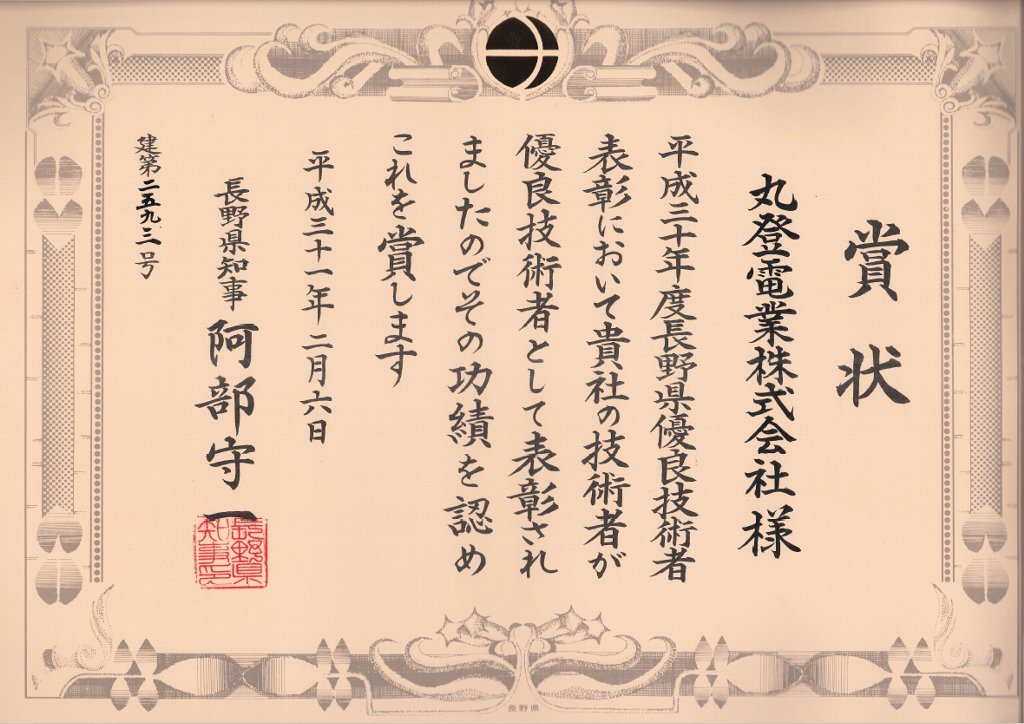 賞状
丸登電業株式会社様
平成三十年度長野県優良技術者
表彰において貴社の技術者が
優良技術者として表彰され
ましたのでその功績を認め
これを賞します
平成三十一年二月六日
長野県知事 阿部守一
長野県知事之印
建第二五九三号
長野県